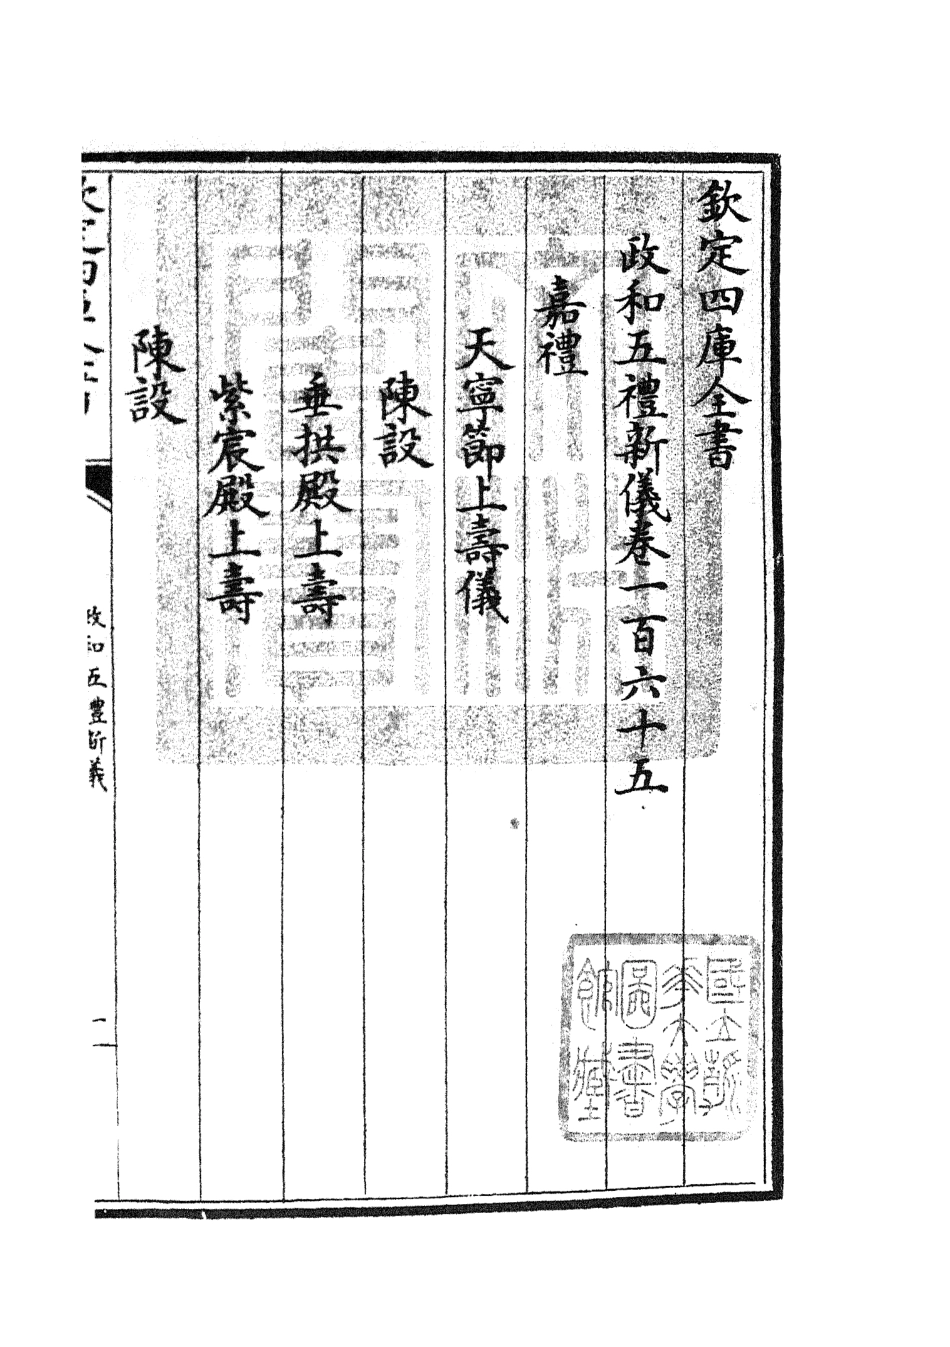 欽定四庫全書
政和五禮新儀卷一百六十五
嘉禮
天寧節上壽儀
陳設
垂拱殿上壽
紫宸殿上壽
陳設
欽定四庫全書
政和五禮新儀
一
國立浙江大學圖書館藏